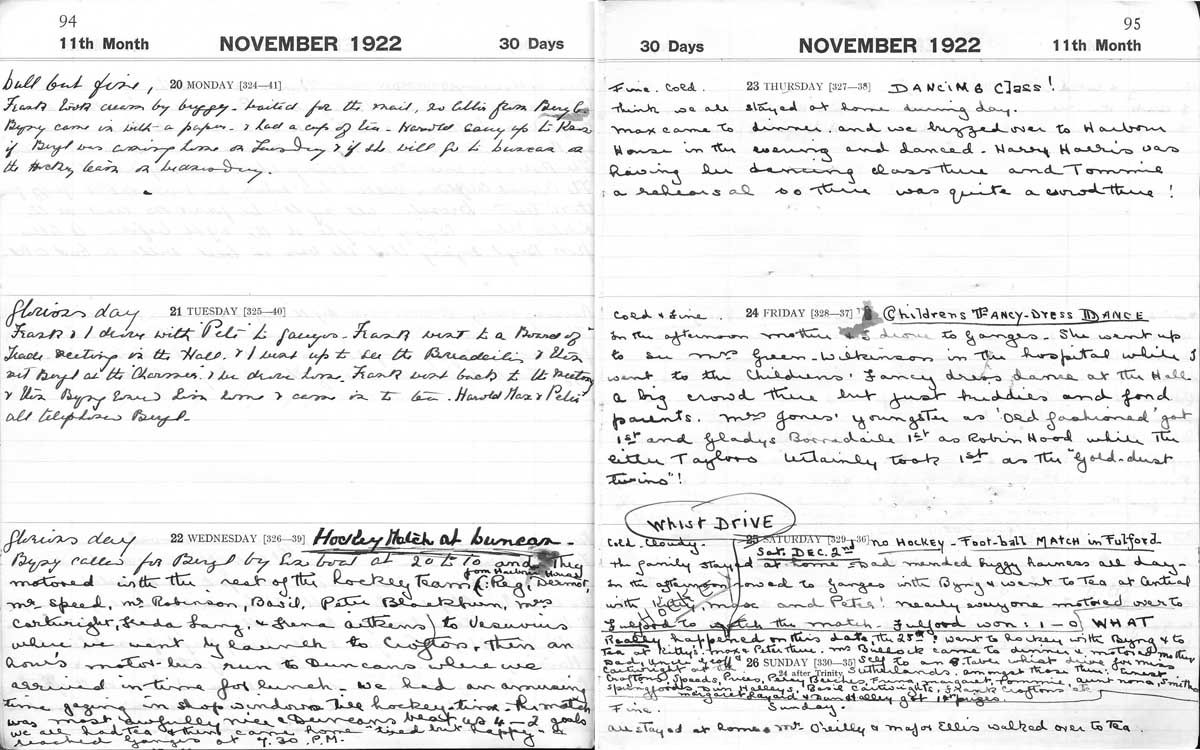 94
11th Month NOVEMBER 1922 30 Days
dull but fine, 20 MONDAY [324—41]
Frank took cream by buggy - waited for the mail,
Byng came in with a paper & had a cup of tea - Harold
if Beryl was coming home on Tuesday & if she will go to Duncan
the Hockey team on Wednesday.
glorious day 21 TUESDAY [325—40]
Frank & I drove with "Pete" to Ganges. Frank went to a Board of
Trade meeting in the Hall & I went up to see the & then
met Beryl at the "Charmer" & we drove home. Frank went back to the meeting
& then Byng home & came in to tea. Harold Max & Pete
all telephoned Beryl.
glorious day 22 WEDNESDAY [326—39] Hockey Match at Duncan -
Byng called for Beryl by his boat at 20 to 10 and they
from Harbour House
motored with the rest of the hockey team (: Peg, Dermot,
Mr Speed, Mr Robinson, Basil, Peter Blackburn, Mrs
Cartwright, Freda Lang, & Aitkens) to Vesuvius
where we went by launch to Crofton, then an
hour's motor-bus run to Duncans where we
arrived in time for lunch. We had an amusing
time gazing in shop windows till hockey-time. The match
was most awfully nice & Duncans beat us 4-2 goals
we all had tea & then came home - tired but happy - &
reached Ganges at 7.30 P.M.
95
30 Days NOVEMBER 1922 11th Month
Fine. Cold. 23 THURSDAY [327—38] DANCING Class!
Think we all stayed at home during day.
Max came to dinner, and we buzzed over to Harbour
House in the evening and danced. Harry Harris was
having her dancing class there and Tommie
a rehearsal so there was quite a crowd there!
Cold & fine. 24 FRIDAY [328—37] Childrens FANCY-DRESS DANCE
In the afternoon mother & I drove to Ganges. She went up
to see Mrs Green-Wilkinson in the hospital while I
went to the Childrens' Fancy dress dance at the Hall
a big crowd there but just kiddies and fond
parents. Mrs Jones' youngster as 'Old fashioned' got
1st and Gladys Borradaile 1st as Robin Hood while the
little Taylors certainly took 1st as the "Gold-dust
twins"!
WHIST DRIVE
Cold. Cloudy. 25 SATURDAY [329—36] no HOCKEY - Foot-ball MATCH in Fulford
Sat. DEC. 2nd
The family stayed at home & Dad mended buggy harness all day-
In the afternoon I rowed to Ganges with Byng & went to Tea at Central
with Kitty, Max and Pete! nearly everyone motored over to
Fulford to watch the match. Fulford won: 1-0 WHAT
Really happened on this date, the 25th: I went to hockey with Byng & to
tea at Kitty's: Max & Peter there. Mr Bullock came to dinner & motored mother
Dad, & self to an 8 Table whist drive for Miss
26 SUNDAY [330—35]
24 after Trinity
Cartwright at the Sutherlands, amongst those there: Ernest
Croftons, Speeds, Prices, Percy Beeches, Tommie, aunt nona, Smiths
Springfords, Halleys, Basil Cartwrights, Frank Croftons etc
Margaret Layard & Halley got 1st prizes.
Fine. Sunday.
all stayed at home & Mr O'Reilly & Major Ellis walked over to tea.